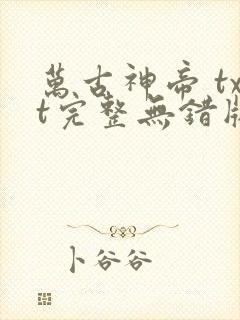 萬古神帝 tx
t完整無錯版
卜谷谷